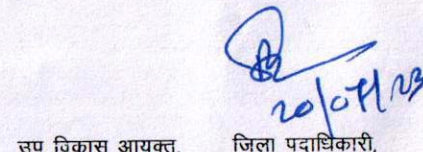 20/07/23
उप विकास आयुक्त, जिला पदाधिकारी,